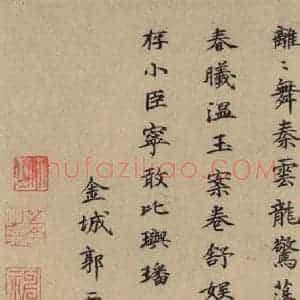 離〻舞秦雲龍驚
春曦溫玉案卷舒娛
存小臣寧敢比璵璠
金城郭
shufaziliao.com